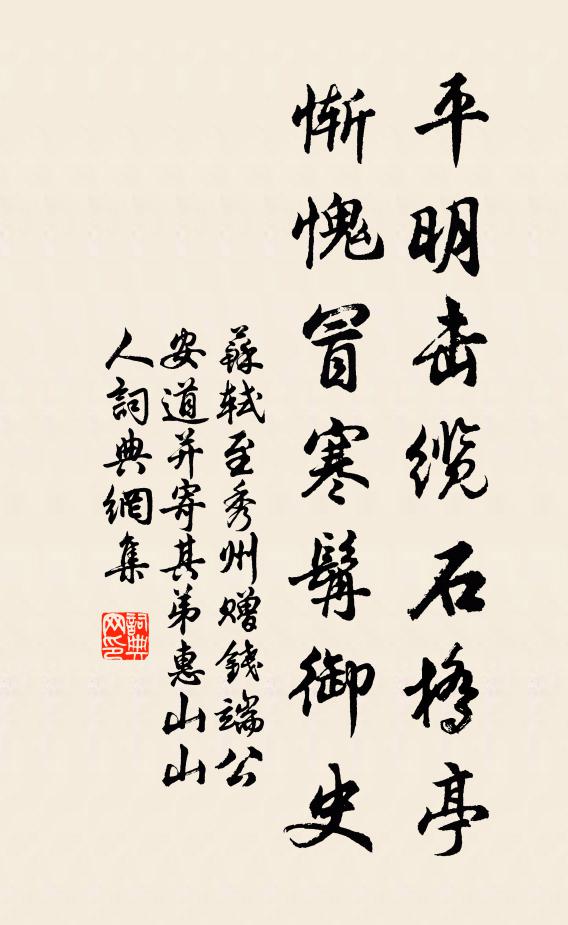 平明击缆石橋亭
惭愧冒寒髯御史
蘇轼至秀州赠錢端公
安道并寄其弟惠山山
人詞典網集
詞典网印